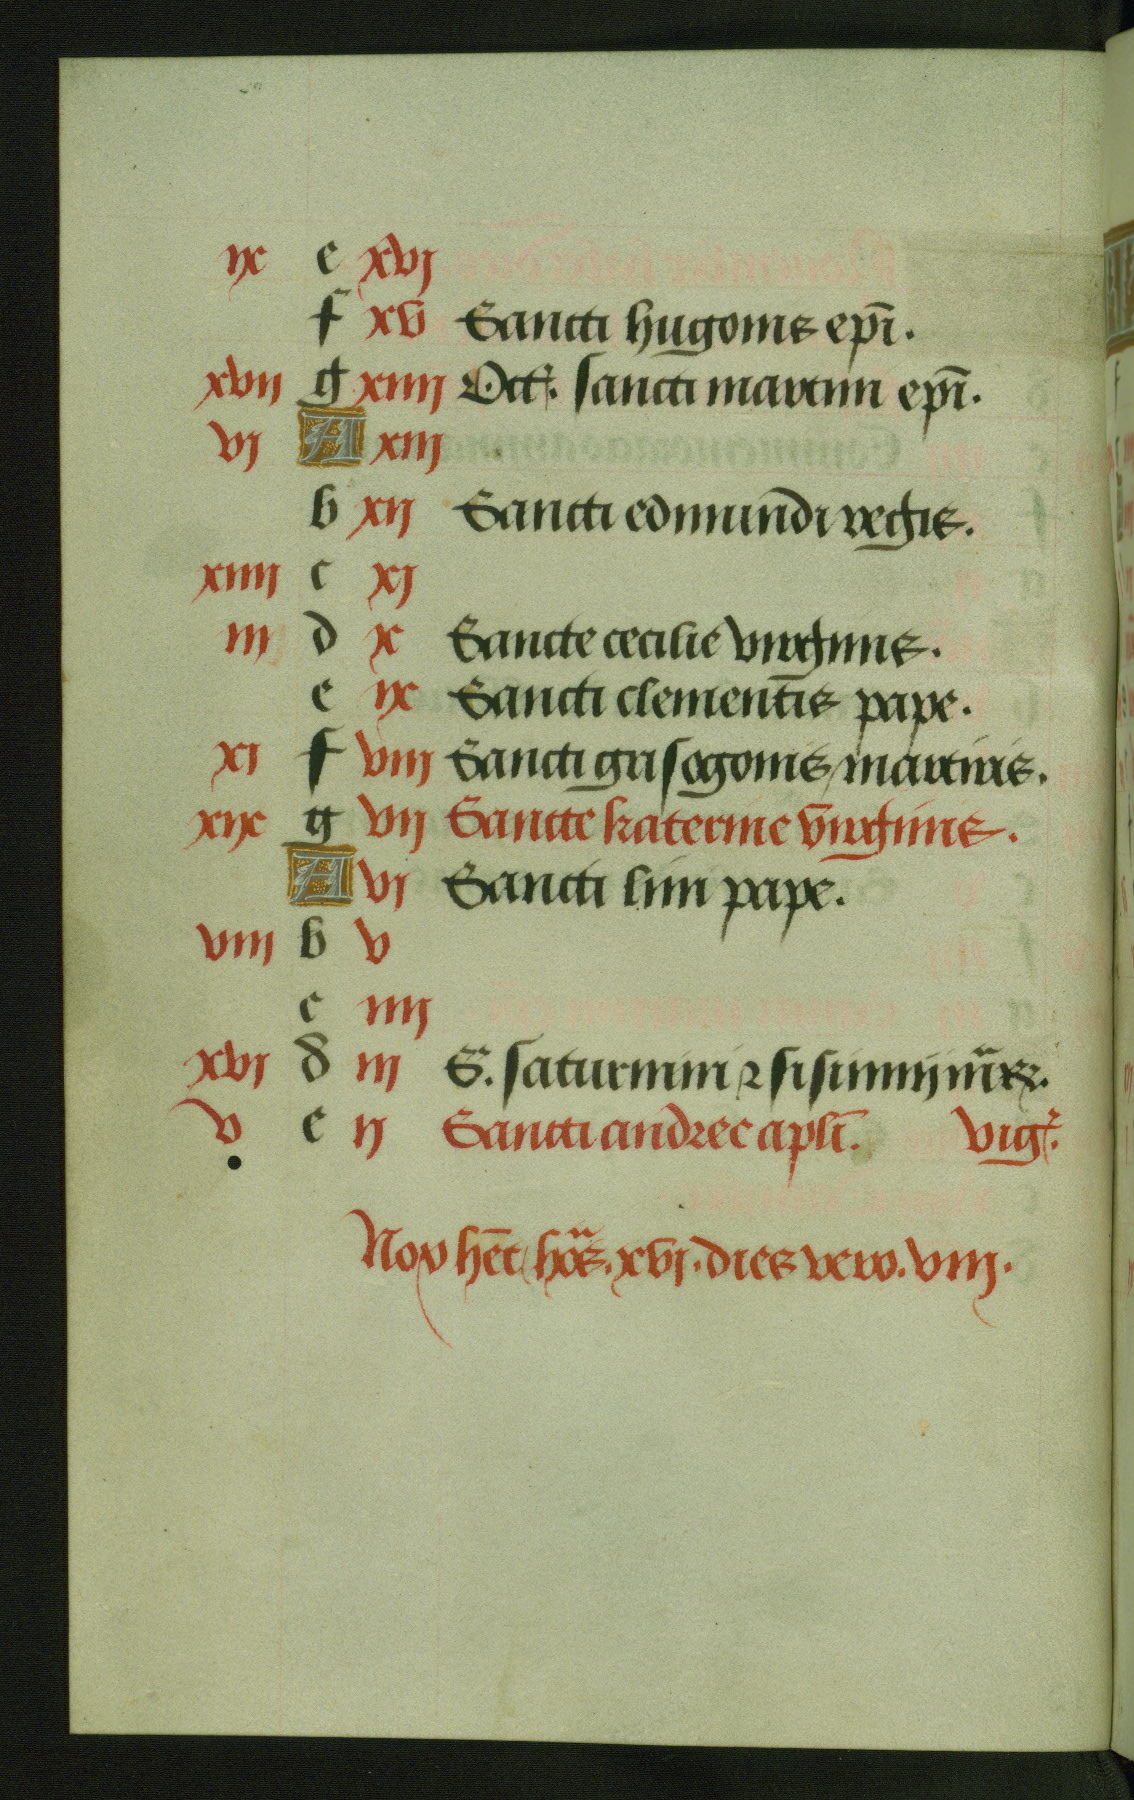 ix e xvj
f xv Sancti hugonis ep̄i.
xvii g xiiij Oct͛. sancti martini ep̄i.
vj A xiij
b xij Sancti edmun̄di regis.
xiiij c xj
iij d x Sancte cecilie virginis.
e ix Sancti clemen̄tis pape.
xi f viij Sancti grisogonis martiris.
xix g vij Sancte katerine v̄irginis.
A vj Sancti lini pape.
viij b v
c iiij
xvj d iij S. saturnini ⁊ sisinnij
v e ij Sancti andree apl̄i. vig͛.
Nox hēt hoās. xvj. dies vero. viij.